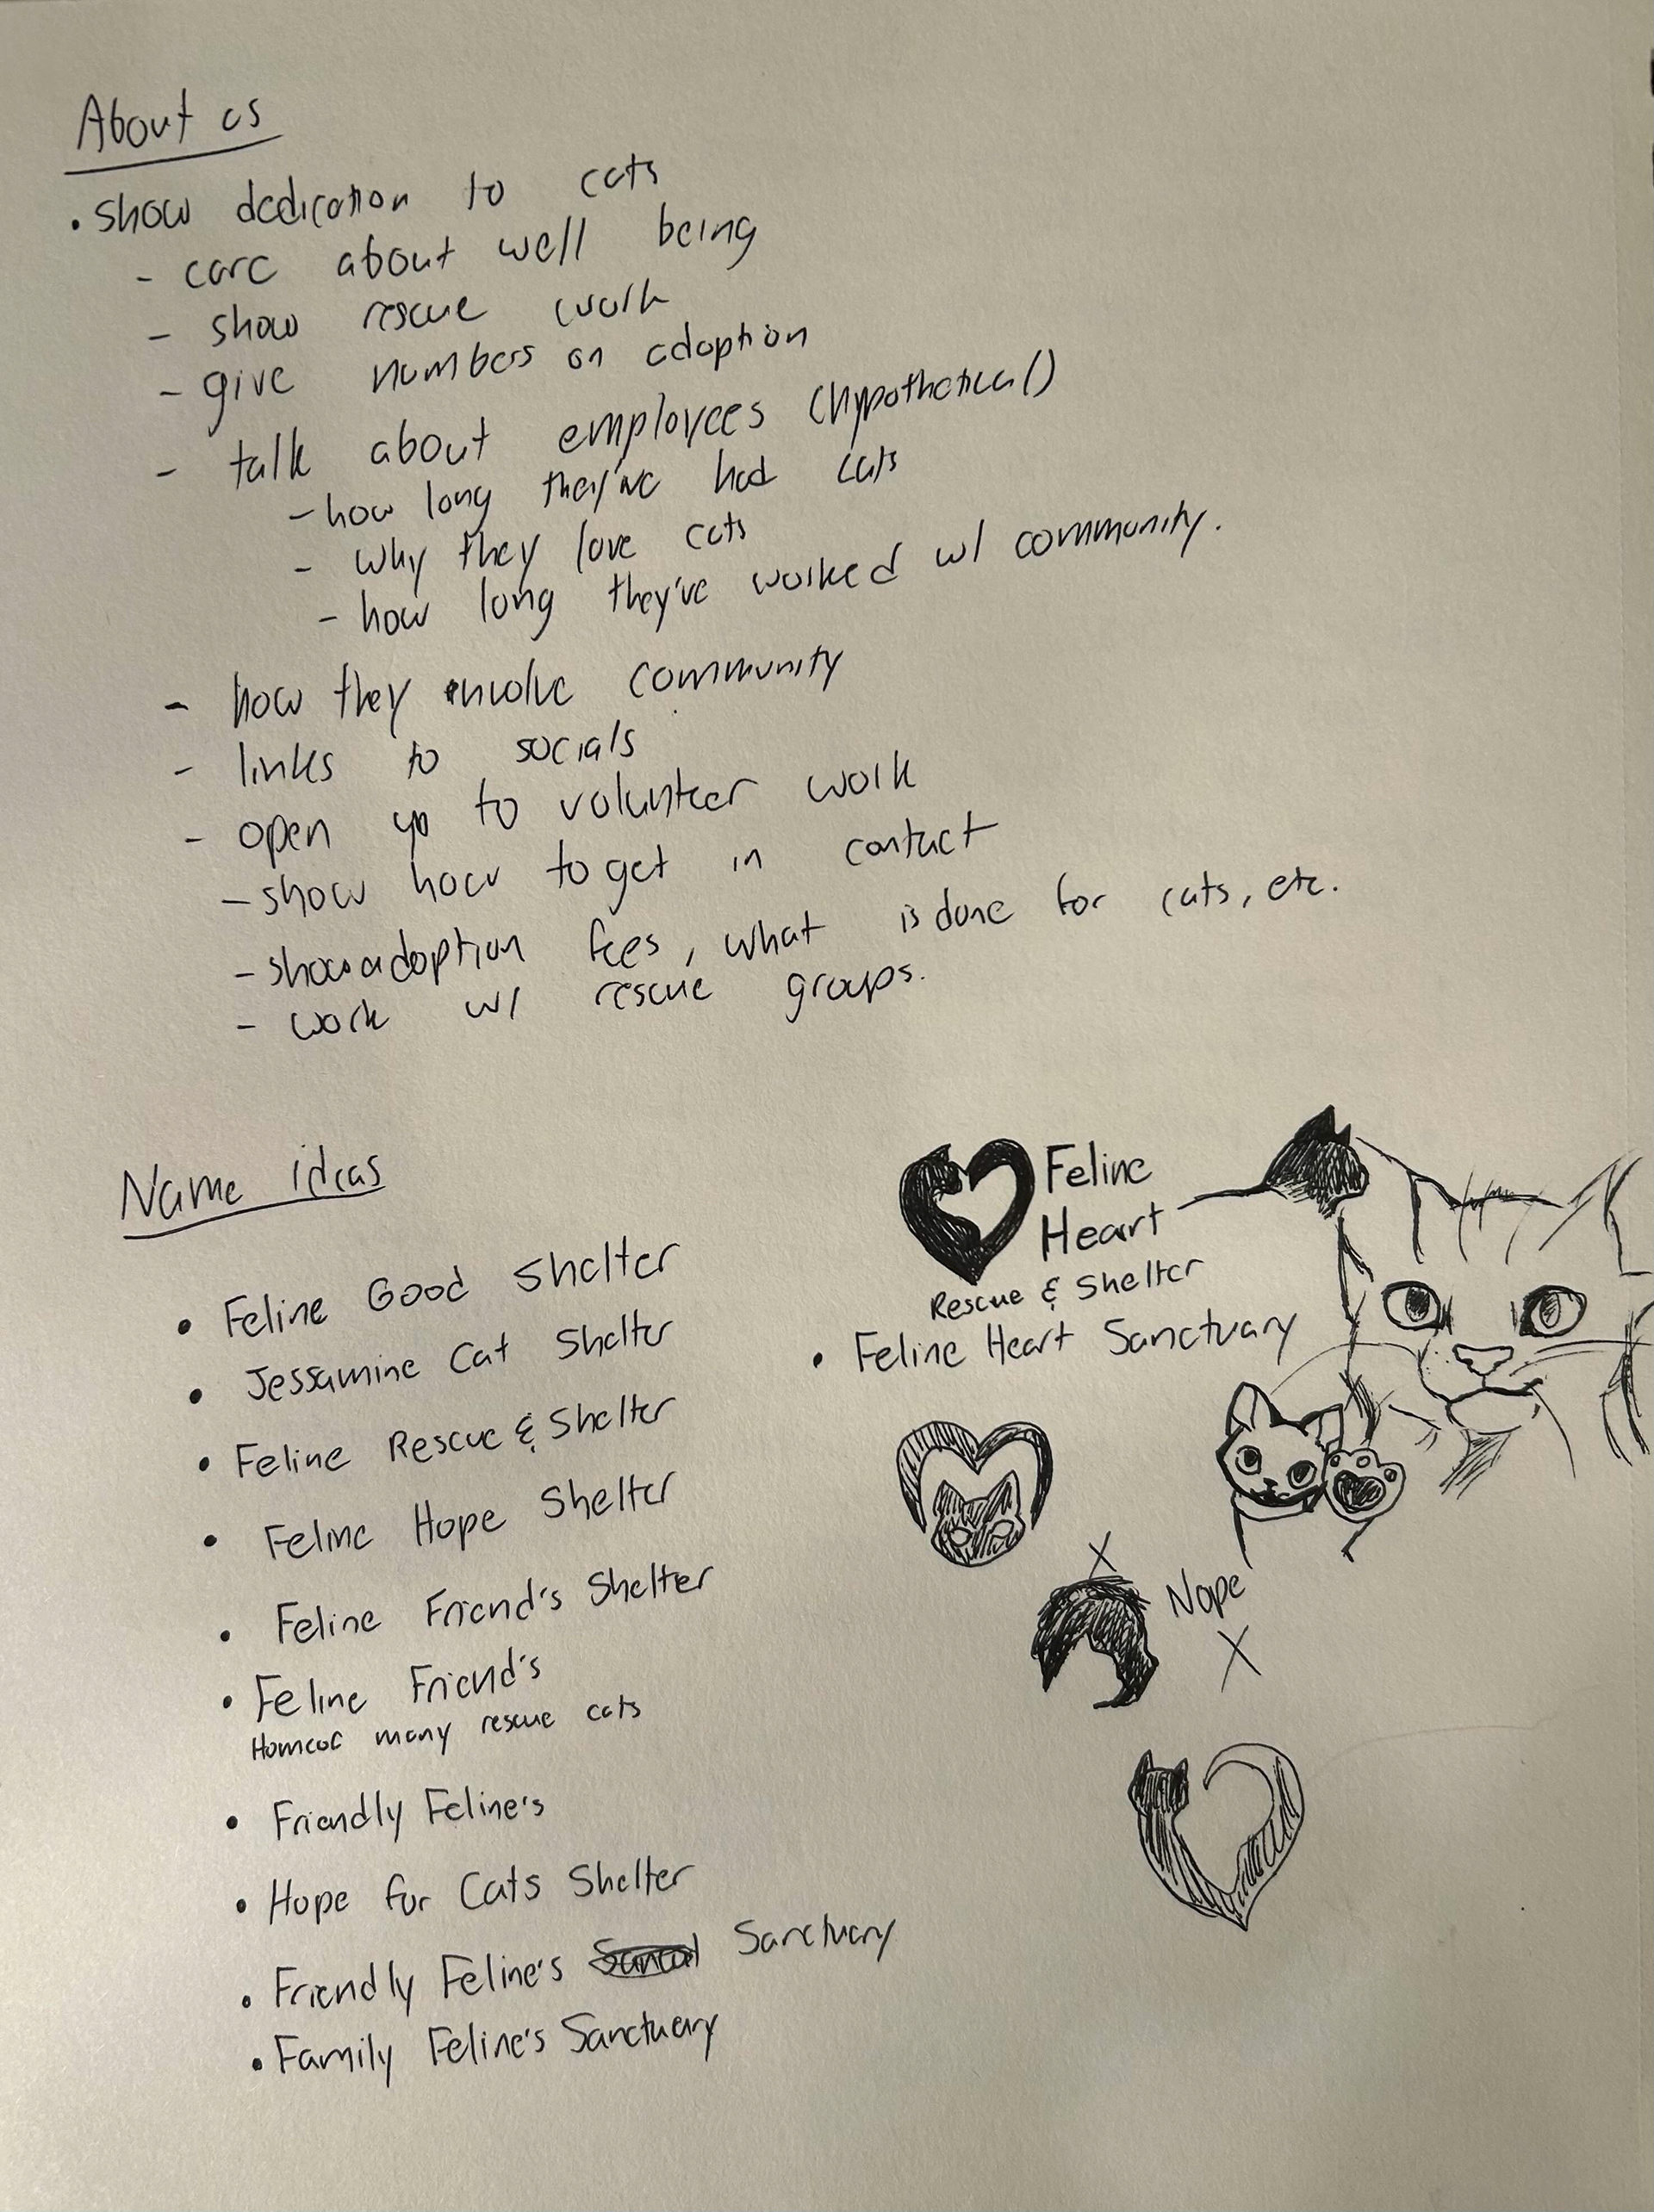 About us
• show dedication to cats
- care about well being
- show rescue work
- give numbers on adoption
- talk about employees (hypothetical)
- how long they've had cats
- why they love cats
- how long they've worked w/ community.
- how they involve community
- links to socials
- open up to volunteer work
- show how to get in contact
- show adoption fees, what is done for cats, etc.
- work w/ rescue groups.
Name ideas
• Feline Good Shelter
• Jessamine Cat Shelter
• Feline Rescue & Shelter
• Feline Hope Shelter
• Feline Friend's Shelter
• Feline Friend's
Home of many rescue cats
• Friendly Feline's
• Hope for Cats Shelter
• Friendly Feline's Sanctuary
• Family Feline's Sanctuary
Feline
Heart
Rescue & Shelter
• Feline Heart Sanctuary
X
Nope
X